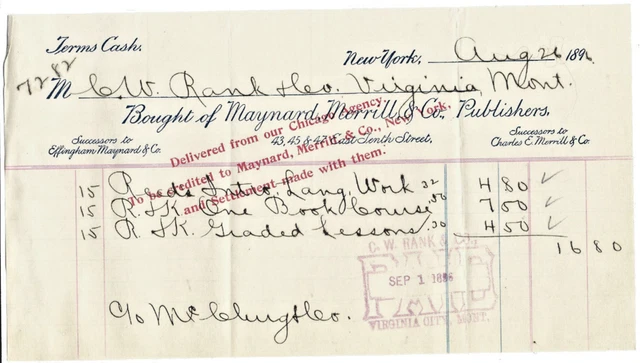 Terms Cash.
New York, Aug 26 1896
7282
M C.W. Rank & Co. Virginia, Mont.
Bought of Maynard, Merrill & Co., Publishers,
Successors to
Effingham Maynard & Co.
43, 45 & 47 East Tenth Street,
Successors to
Charles E. Merrill & Co.
Delivered from our Chicago Agency.
To be credited to Maynard, Merrill & Co., New York,
and Settlement made with them.
15 Reeds Intro. Lang. Work 32 4 80
15 R. & K. One Book Course 50 7 50
15 R. & K. Graded Lessons .30 4 50
16 80
C. W. RANK & CO.
PAID
SEP 1 1896
VIRGINIA CITY, MONT.
c/o McClurg & Co.